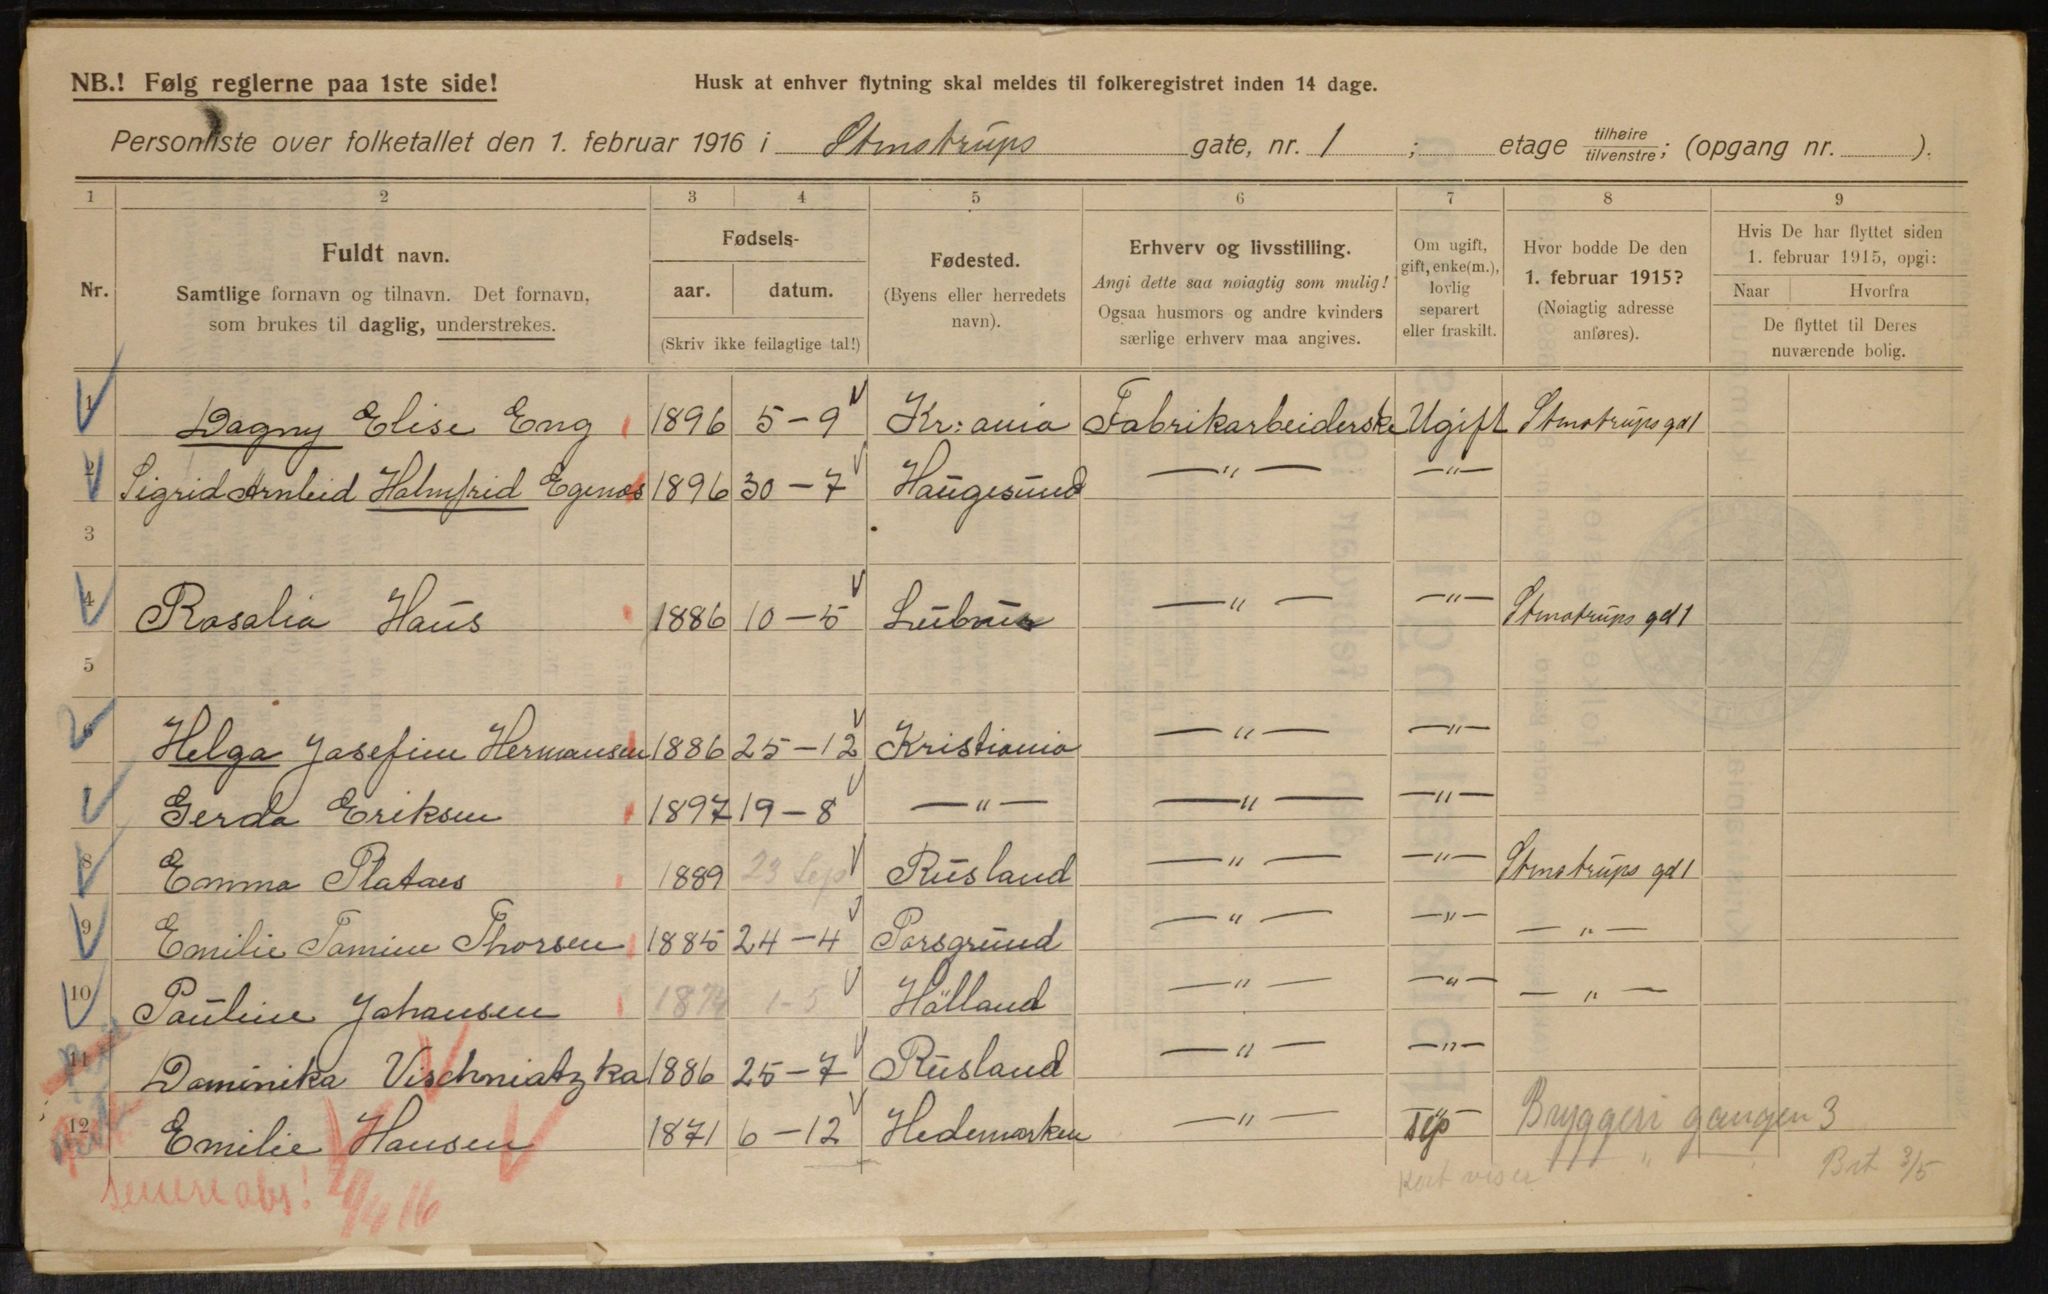 NB.! Følg reglerne paa 1ste side!
Husk at enhver flytning skal meldes til folkeregistret inden 14 dage.
Personliste over folketallet den 1. februar 1916 i Stenstrups gate, nr. 1 ; etage tilhøire tilvenstre; (opgang nr. ).
1 2 3 4 5 6 7 8 9
Nr.
Fuldt navn.
Samtlige fornavn og tilnavn. Det fornavn,
som brukes til daglig, understrekes.
Fødsels-
aar. datum.
(Skriv ikke feilagtige tal!)
Fødested.
(Byens eller herredets
navn).
Erhverv og livsstilling.
Angi dette saa nøiagtig som mulig!
Ogsaa husmors og andre kvinders
særlige erhverv maa angives.
Om ugift,
gift, enke(m.),
lovlig
separert
eller fraskilt.
Hvor bodde De den
1. februar 1915?
(Nøiagtig adresse
anføres).
Hvis De har flyttet siden
1. februar 1915, opgi:
Naar Hvorfra
De flyttet til Deres
nuværende bolig.
1 Dagny Elise Eng 1896 5-9 Kr:ania Fabrikarbeiderske Ugift Stenstrups gd 1
2 Sigrid Arnleid Halmfrid Egenæs 1896 30-7 Haugesund —"— —"—
3
4 Rosalia Haus 1886 10-5 —"— —"— Stenstrups gd 1
5
6 Helga Josefine Hermansen 1886 25-12 Kristiania —"— —"—
Gerda Eriksen 1897 19-8 —"— —"— —"—
8 Emma Plataes 1889 23 Sep Rusland —"— —"— Stenstrups gd 1
9 Emilie Tomine Thorsen 1885 24-4 Porsgrund —"— —"— —"—
10 Pauline Johansen 1874 1-5 Hölland —"— —"— —"—
11 Dominika Vischniatzka 1886 25-7 Rusland —"— —"—
12 Emilie Hansen 1871 6-12 Hedemarken —"— sep Bryggeri gangen 3
senere obs! 29/4 16
Kort viser " Brt 3/5